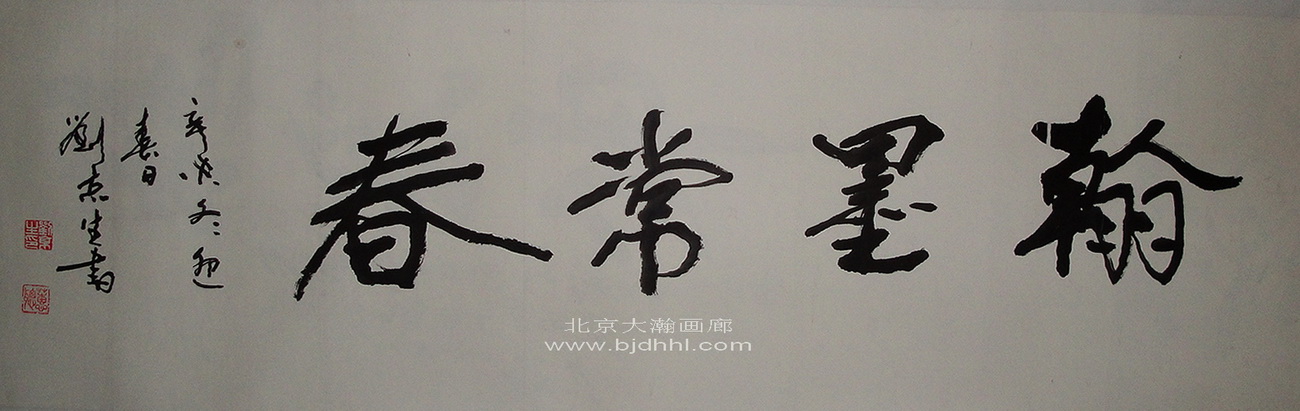 翰墨常春
辛 冬迎
春日
劉京生書
北京大瀚画廊
www.bjdhhl.com